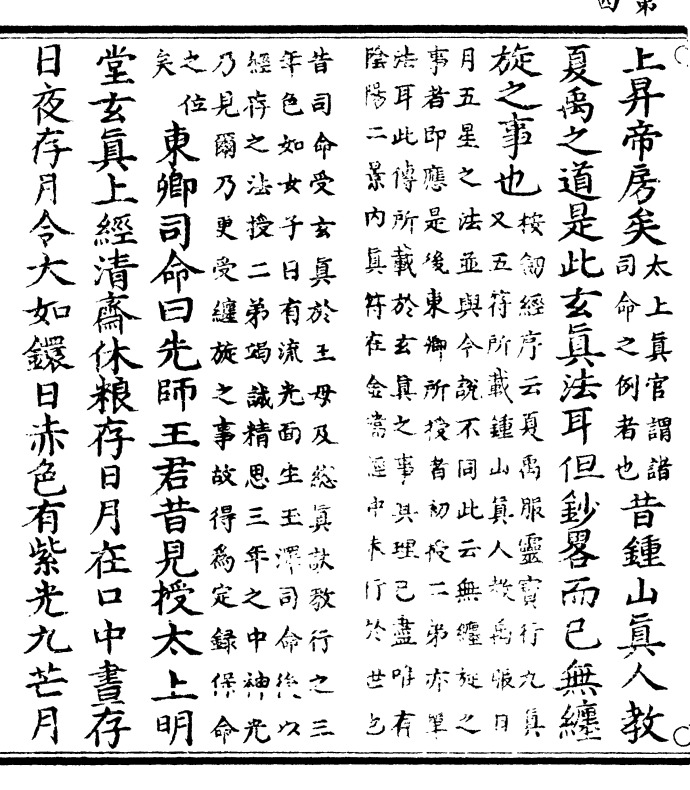 第四
上昇帝房矣太上眞官謂諸
司命之例者也昔鍾山眞人教
夏禹之道是此玄眞法耳但鈔畧而已無纏
旋之事也桉劒經序云夏禹服靈寳行九眞
又五符所載鍾山眞人教禹服日
月五星之法並與今說不同此云無纏旋之
事者即應是後東卿所授者初授二弟亦單
法耳此傳所載於玄眞之事具理已盡唯有
陰陽二景内眞符在金經中未行於世也
昔司命受玄眞於王母及総眞訣教行之三
年色如女子日有流光面生玉澤司命後以
經存之法授二弟竭誠精思三年之中神光
乃見爾乃更受纏旋之事故得爲定録保命
之位
矣東卿司命曰先師王君昔見授太上明
堂玄眞上經清齋休粮存日月在口中晝存
日夜存月令大如鐶日赤色有紫光九芒月